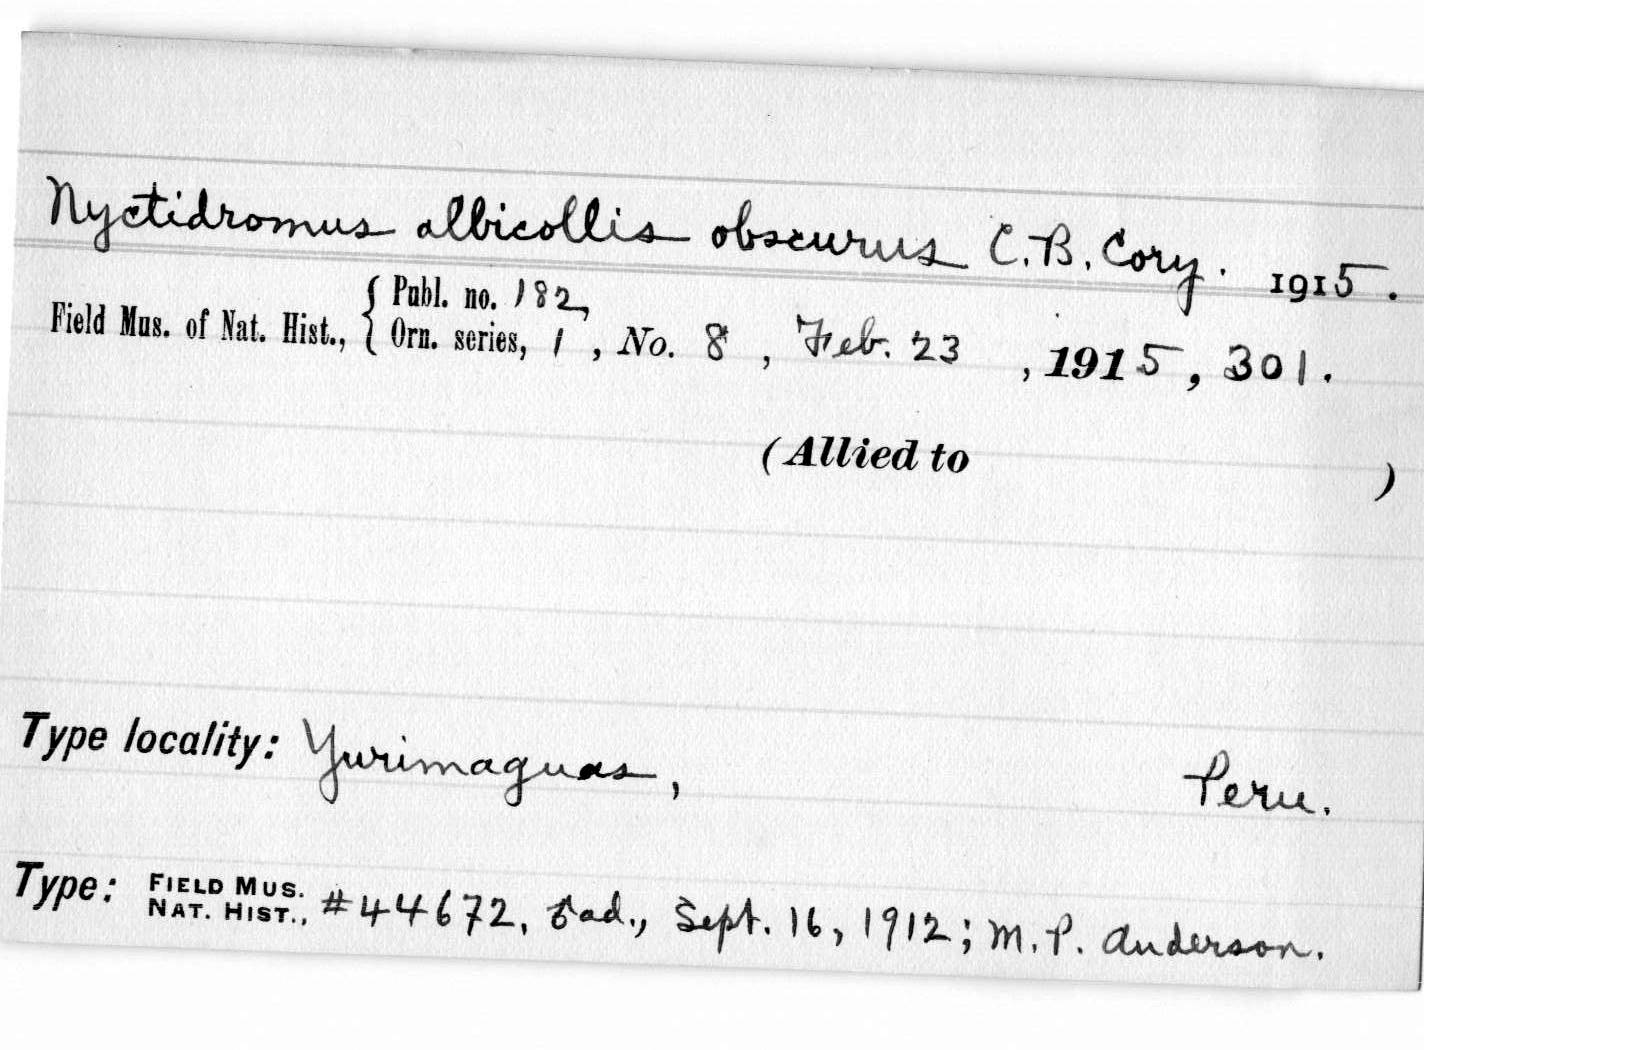 Nyctidromus albicollis obscurus C.B. Cory. 1915.
Field Mus. of Nat. Hist., { Publ. no. 182,
Orn. series, 1, No. 8, Feb. 23, 1915, 301.
(Allied to )
Type locality: Yurimaguas, Peru.
Type: FIELD MUS.
NAT. HIST., #44672, ad., Sept. 16, 1912; M.P. Anderson.